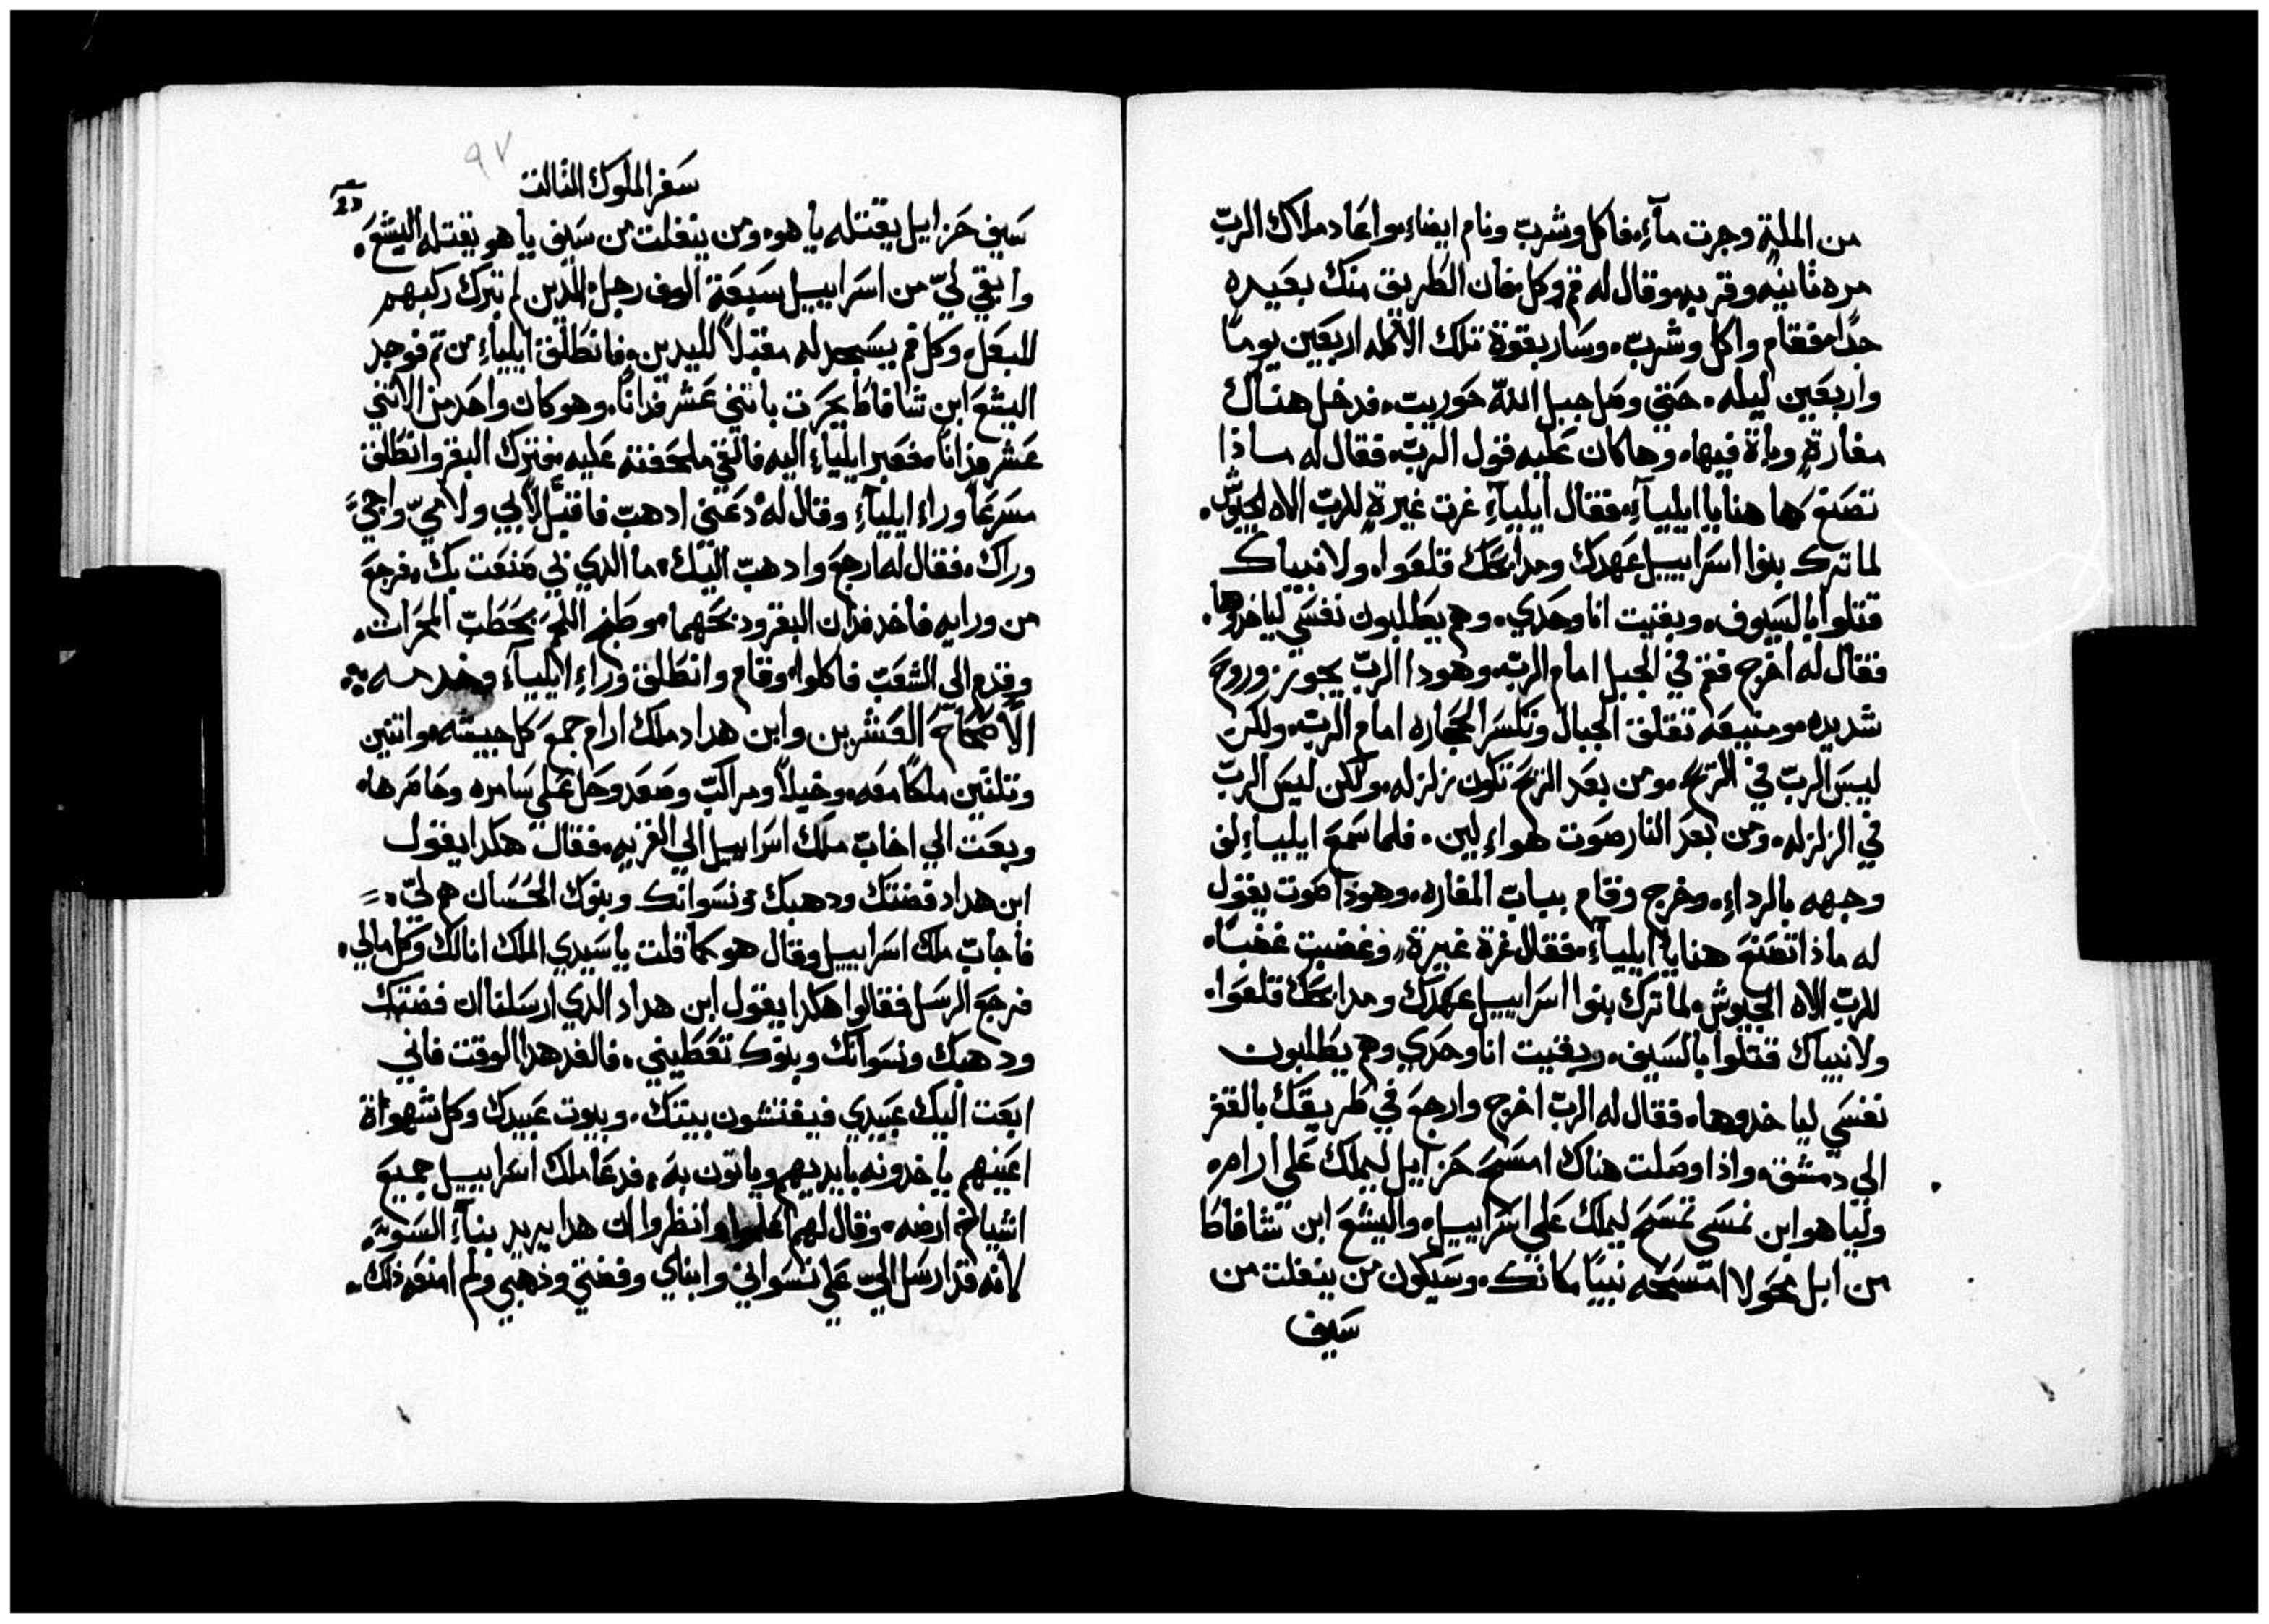 من المله وجرت مآءٍ. فاكل وشربّ ونام ايضاء. واعَاد ملاك الربّ
مره ثانيه وقربه. وقال له قم وكل. فان الطريق منك بعَيده
جدًا. فقام واكل وشربّ. وسَار بقوة تلك الاكله اربعَين يومًا
واربعَين ليله. حَتي وصَل جبل اللّه حَوريبّ. فدخل هناك
مغارةٍ وباة فيها. وها كان عَليه قول الربّ. فقال له ماذا
تصَنع ها هنا يا ايليآءِ. فقال ايليآءِ غرت غيرةٍ للربّ الاه الجيوش.
لما ترك بنوا اسَراييل عَهدك ومدابحَك قلعَوا. ولانبياك
قتلوا بالسَيوف. وبقيت انا وحَدي. وهم يطلبون نفسَي لياخدوها.
فقال له اخرج فقم في الجبل امام الربّ. وهودا الربّ يجوز وروحَ
شديده. ومنيعَه تقلق الجبال وتكسَر الحجاره امام الربّ. ولكن
ليسَ الربّ في الريحَ. ومن بعَد الريحَ تكون زلزله. ولكن ليسَ الربّ
في الزلزله. ومن بعَد النار صَوت هواءٍ لين. فلما سَمعَ ايلياءِ لف
وجهه بالرداءِ. وخرج وقام ببابّ المغاره. وهوذا صَوت يقول
له ماذا تصَنعَ هنا يا ايليآءِ. فقال غرة غيرة. وغضبت غضبًا.
للربّ الاه الجيوش. لما ترك بنوا اسَراييل عَهدك ومدابحَك قلعَوا.
ولانبياك قتلوا بالسَيف. وبقيت انا وحَدي وهم يطلبون
نفسَي لياخدوها. فقال له الربّ اخرج وارجعَ في طريقك بالقفر
الي دمشق. واذا وصَلت هناك امسَحَ حَزاييل ليملك عَلي ارام.
وليا هو ابن نمسَي تمسَحَ ليملك عَلي اسَراييل. واليشعَ ابن شافاط
من ابل محَولا امسَحَه نبيًا مكانك. وسَيكون من ينفلت من
سَيف
٩٧
سَفر الملوك الثالث
سَيف حَزاييل يقتله ياهو. ومن ينفلت من سَيف ياهو يقتله اليشعَ.
وابقي ليّ من اسَراييل سَبعَة الوف رجل. الدين لم تبرك ركبهم
للبعَل. وكل فم يسَجد له مقبلاً لليدين. فانطلق ايلياءِ من ثم فوجد
اليشعَ ابن شافاط يحَرت باتني عَشر فدانًا. وهو كان واحَد من الاتني
عَشر فدانًا. فعَبر ايلياءِ اليه فالقي ملحَفته عَليه. فترك البقر وانطلق
مسَرعًا وراء ايليآءِ وقال له دعَني ادهبّ فاقبّل لابي ولامّي واجيَ
وراك. فقال له ارجعَ وادهبّ اليك. ما الدي لي صَنعَت بك. فرجعَ
من ورايه فاخد فدان البقر ودبحَهما. وطبخ اللحَم بحَطبّ المحَرات.
وقدم الي الشعَبّ فاكلوا. وقام وانطلق وراءِ ايليآءِ وخدمه.
الاَصْحَاحَ العَشرين وابن هداد ملك ارام جمعَ كل جيشه. واتنين
وتلتين ملكًا معَه. وخيلاً ومراكبّ وصَعَد وحَل عَلي سَامره وحَاصَرها.
وبعَت الي اخابّ ملك اسَراييل الي القريه. فقال هكدا يقول
ابن هداد فضتك ودهبك. ونسَوانك وبنوك الحَسَان هم ليّ.
فاجابّ ملك اسَراييل وقال هو كما قلت يا سَيدي الملك انا لك وكل مالي.
فرجعَ الرسَل فقالوا هكدا يقول ابن هداد الدي ارسَلنا ان فضتك
ودهبك ونسَوانك وبنوك تعَطيني. فالغد هدا الوقت فاني
ابعَت اليك عَبيدي فيفتشون بيتك. وبيوت عَبيدك وكل شهواة
اعَينهم ياخدونه بايديهم وياتون به. فدعَا ملك اسَراييل جميعَ
اشياخ ارضه. وقال لهم اعَلموا وانظروا ان هدا يريد بنآءِ السَوية.
لانه قد ارسَل اليّ عَلي نسَواني وابناي وفضتي وذهبي ولم امنعَه ذلك.